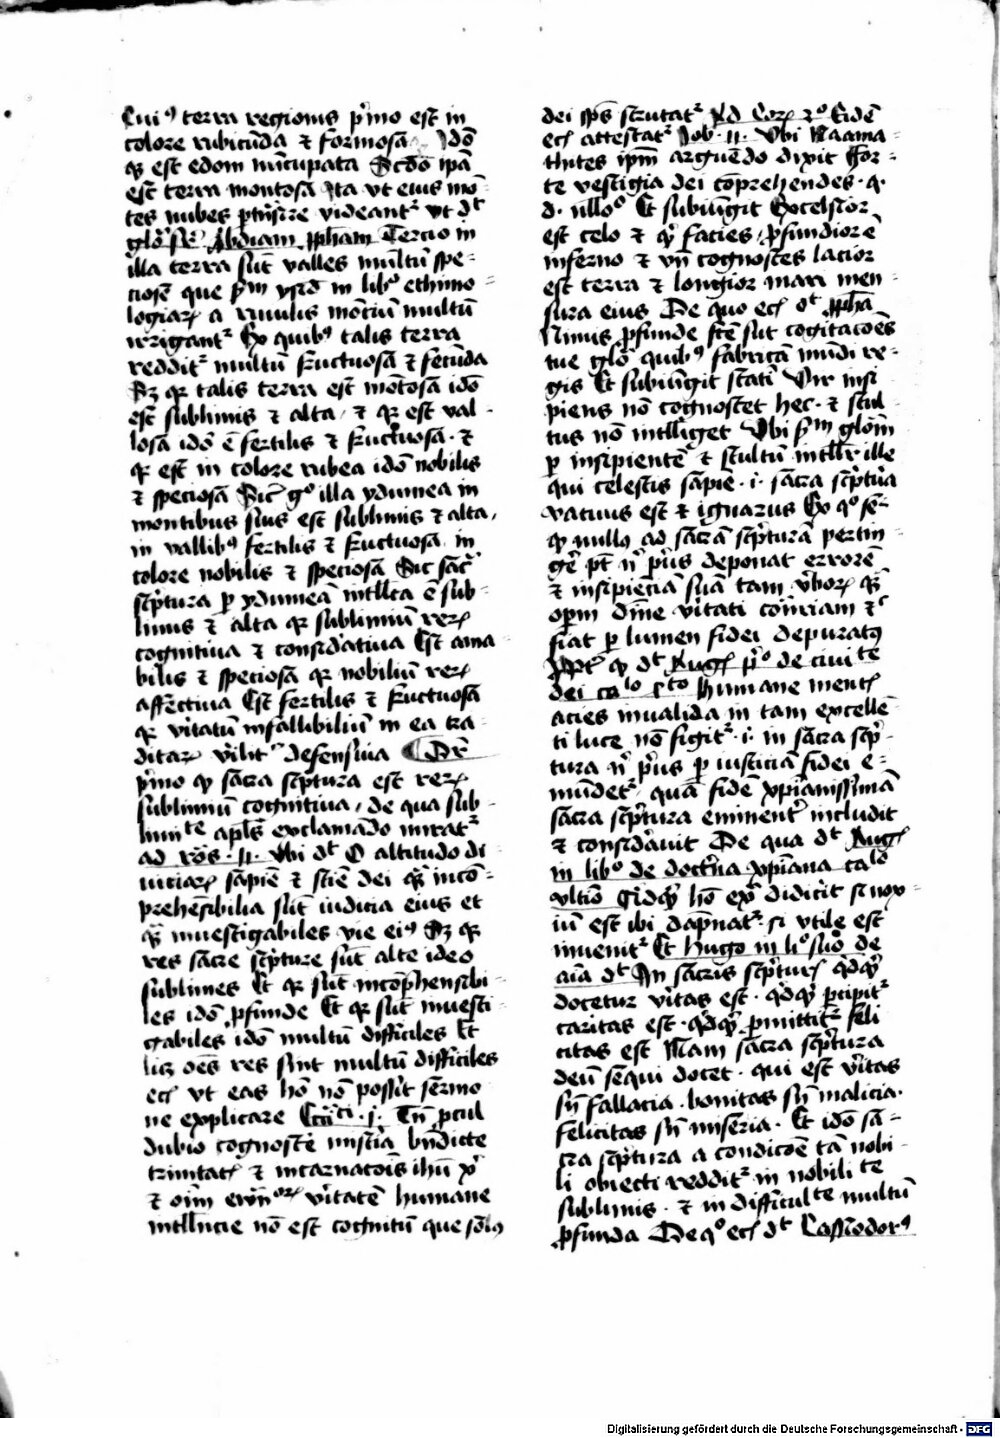 Cui⁹ terra regionis p'mo est in
colore rubicūda ⁊ formosa Idō
q̄ est edom nūcupata Scdō ipā
est terra montosa Ita vt eius mō
tes nubes videant² vt dt
Abdiam ꝓphām Tercio in
illa terra sūt valles multū spe
ciose que p̄m ysid in lib° ethimo
logiaꝝ a riuulis montiū multū
irrigant² Ex quib⁹ talis terra
reddit² multū fructuosa ⁊ fecūda
Sꝫ qꝛ talis terra est mōtosa idō
est sublimis ⁊ alta / ⁊ qꝛ est val
losa idō ē fertilis ⁊ fructuosa · ⁊
qꝛ est in colore rubea idō nobilis
⁊ speciosa Sic g° illa ydumea in
montibus suis est sublimis ⁊ alta,
in vallib⁹ fertilis ⁊ fructuosa in
colore nobilis ⁊ speciosa Sic sac̄
sc̄ptura p ydumeā intllc̄a ē sub
limis ⁊ alta qꝛ sublimiū reꝝ
cognitiua ⁊ consid'atiua Est ama
bilis ⁊ speciosa qꝛ nobiliū reꝝ
affectiua Est fertilis ⁊ fructuosa
qꝛ v'itatū infallibiliū in ea tra
ditaꝝ defensiua
p'mo qꝫ sacra sc̄ptura est reꝝ
sublimiū cognitiua / de qua sub
limite apl̄s exclamādo mirat²
ad ro̅s · 11 · Vbi dt O altitudo di
uiciaꝝ sapiē ⁊ sciē dei q̄ incō
prehēsibilia sūt iudicia eius et
q̄ inuestigabiles vie ei⁹ Sꝫ qꝛ
res sacre sc̄pture sūt alte ideo
sublimes Et qꝛ sūt incōphensibi
les idō ꝓfunde Et qꝛ sūt inuesti
gabiles idō multū difficiles Et
licꝫ oēs res sint multū difficiles
ecꝫ vt eas hō nō possit sermo
ne explicare · 1 · Tn̄ pcul
dubio cognoscē mist'ia bn̄dicte
trinitatꝭ ⁊ incarnatōis ihū xp̄i
⁊ oīm v'itatē humane
nō est cognitū que sol⁹
dei sp̄s scrutat² Ad Coꝝ 2° Eidē
ecꝫ attestat² Iob · 11 · Vbi Naama
thites ipm̄ arguēdo dixit For
te vestigia dei cōprehendes · q.
d. nullo° Et subiūgit Excelsior
est celo ⁊ qꝫ facies / ꝓfundior ē
inferno ⁊ vn̄ cognosces lacior
est terra ⁊ longior mari men
sura eius De quo ecꝫ dt ꝓphā
Nimis ꝓfunde fc̄e sūt cogitacōes
tue glō quib⁹ fabricā mūdi re
gis Et subiūgit stati Vir insi
piens nō cognoscet hec · ⁊ stul
tus nō intelliget Vbi p̄m glōm
p insipientē ⁊ stultū intll'r ille
qui celestis sapiē · i · sacra sc̄ptura
vacuus est ⁊ ignarus Ex q° seq̄
qꝫ nullus ad sacrā sc̄pturā pertin
ge pt n̄ p'us deponat errorē
⁊ insipiēciā suā tam v'boꝝ q̄
opm̄ diuīe v'itati cont'riam ⁊
fiat p lumen fidei depurat⁹
qꝫ dt Aug⁹ p'° de ciuite
dei ca°lo Humane mentꝭ
acies inualida in tam excellē
ti luce nō figit² · i · in sacra sc̄p
tura n̄ p'us p iusticiā fidei e
mūdet² / quā fidē xp̄ianissimā
sacra sc̄ptura eminent' includit
⁊ consid'auit De qua dt Aug⁹
in lib° de doct'na xp̄iana ca°
vltīo Qidqꝫ hō ex° didic'it si nox
iū est ibi dāpnat² · si vtile est
inuenit² Et hugo in li° suo de
aīa dt In sacris sc̄pturꝭ qdqꝫ
docetur v'itas est · qdqꝫ pcipit²
caritas est · qdqꝫ pmittit² feli
citas est Nam sacra sc̄ptura
deū sequi docet · qui est v'itas
sn̄ fallacia · bonitas sn̄ malicia ·
felicitas sn̄ miseria · Et idō sa
cra sc̄ptura a condicōe tā nobi
li obiecti reddit² in nobilite
sublimis · ⁊ in difficulte multū
ꝓfunda De q° ecꝫ dt Cassiodor⁹
Digitalisierung gefördert durch die Deutsche Forschungsgemeinschaft - DFG